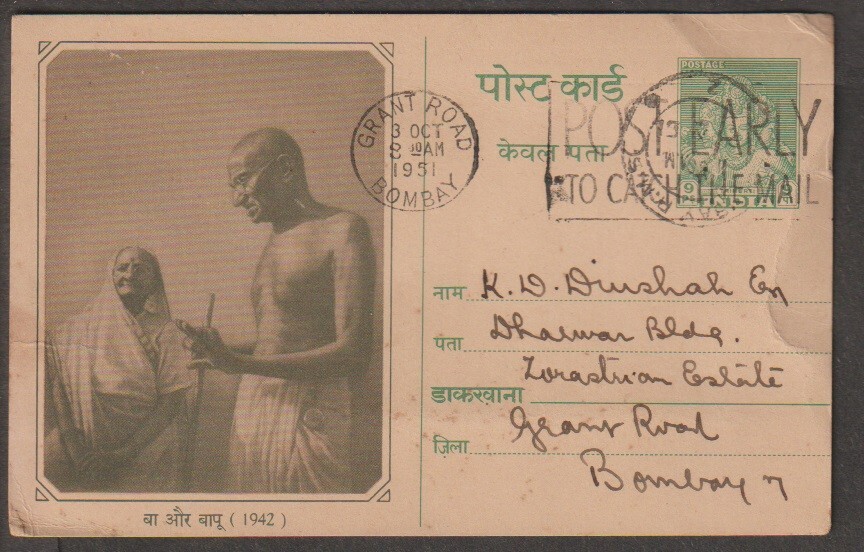 पोस्ट कार्ड
केवल पता
POSTAGE
9
INDIA
GRANT ROAD
3 OCT
8 30AM
1951
BOMBAY
POST EARLY
TO CATCH THE MAIL
नाम K. D. Dinshah Eq
पता Dharwar Bldg.
Zorastrian Estate
डाकखाना
Grant Road
ज़िला
Bombay 7
बा और बापू ( 1942 )